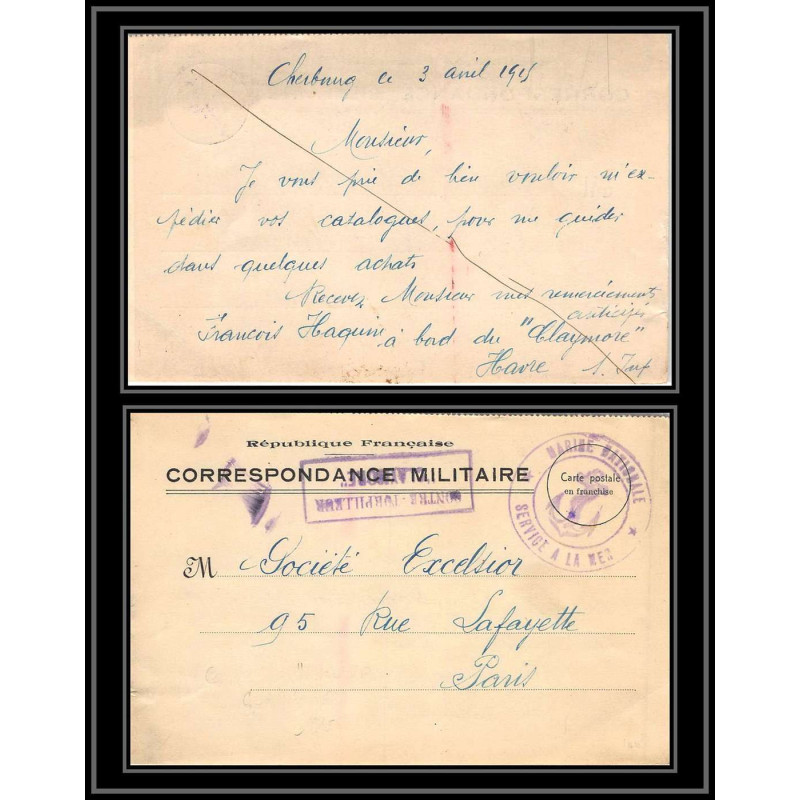 Cherbourg ce 3 avril 1915
Monsieur,
Je vous prie de bien vouloir m'ex-
pédier vos catalogues, pour me guider
dans quelques achats
Recevez Monsieur mes remerciements
anticipés
François Haquin à bord du "Claymore"
Havre
République Française
CORRESPONDANCE MILITAIRE
CONTRE-TORPILLEUR
"CLAYMORE"
MARINE NATIONALE
SERVICE A LA MER
Carte postale
en franchise
M Société Excelsior
95 Rue Lafayette
Paris